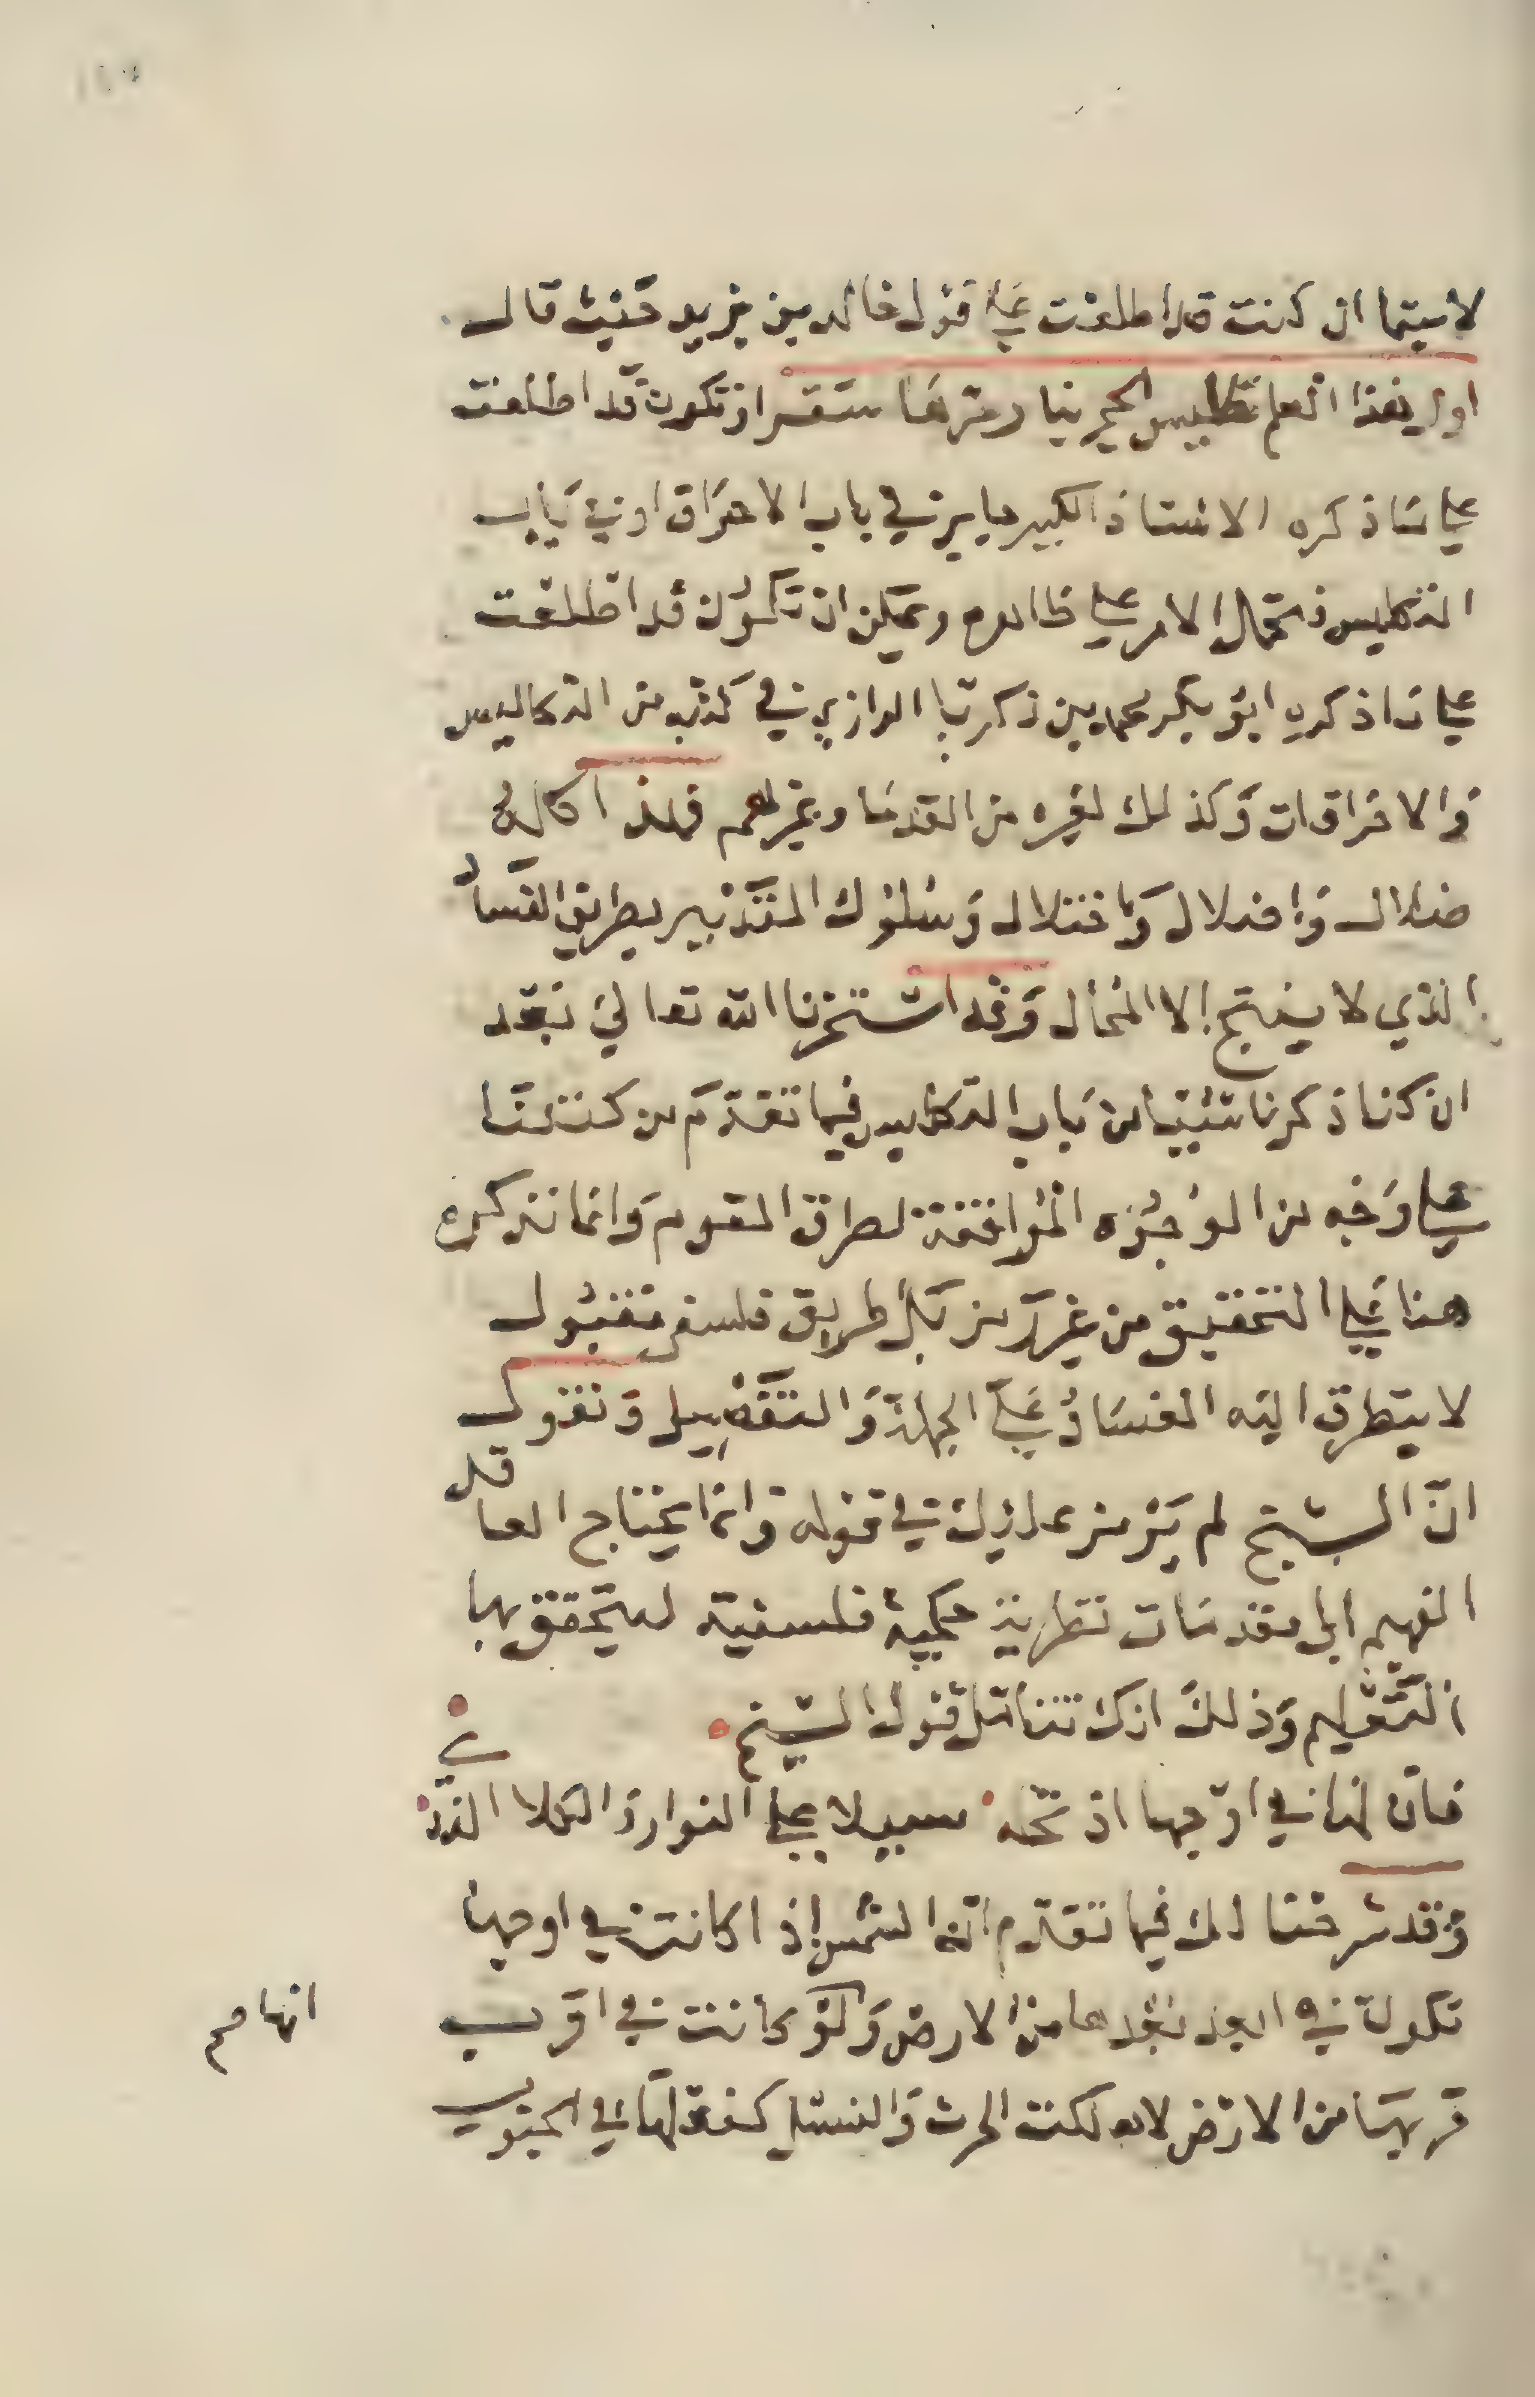 لاسيما ان كنت قد اطلعت على قول خالد بن يزيد حيث قال
اول هذا العلم تكليس الحجر بنار حرها سقر او تكون قد اطلعت
على ما ذكره الاستاذ الكبير جابر في باب الاحراق او في باب
التكليس فتحمل الامر على ظاهره ويمكن ان تكون قد اطلعت
على ما ذكره ابو بكر محمد بن زكريا الرازي في كتبه من التكاليس
والاحراقات وكذلك لغيره من القدما وغيرهم فهذا كله
ضلال واضلال واختلال وسلوك التدبير بطريق الفساد
الذي لا ينتج الا المحال وقد استخرنا الله تعالى بعد
ان كنا ذكرنا شيئا من باب التكليس فيما تقدم من كتبنا
على وجه من الوجوه الموافقة لطرق القوم وانما نذكره
هنا على التحقيق من غير رمز بكل طريق فلسفي مقبول
لا يتطرق اليه الفساد على الجملة والتفصيل ونقول
ان الشيخ لم يرمز عليك في قوله وانما يحتاج العاقل
الفهيم الى مقدمات نظرية حكمية فلسفية ليتحقق بها
التعليم وذلك انك تتأمل قول الشيخ
فان لها في اوجها اذ تحله سبيلا على النوار والكلا الند ي
وقد شرحنا لك فيما تقدم ان الشمس اذا كانت في اوجها
تكون في ابعد بعدها من الارض ولو كانت في اقرب
انها صح
قربها من الارض لاهلكت الحرث والنسل كفعلها في الجنوب